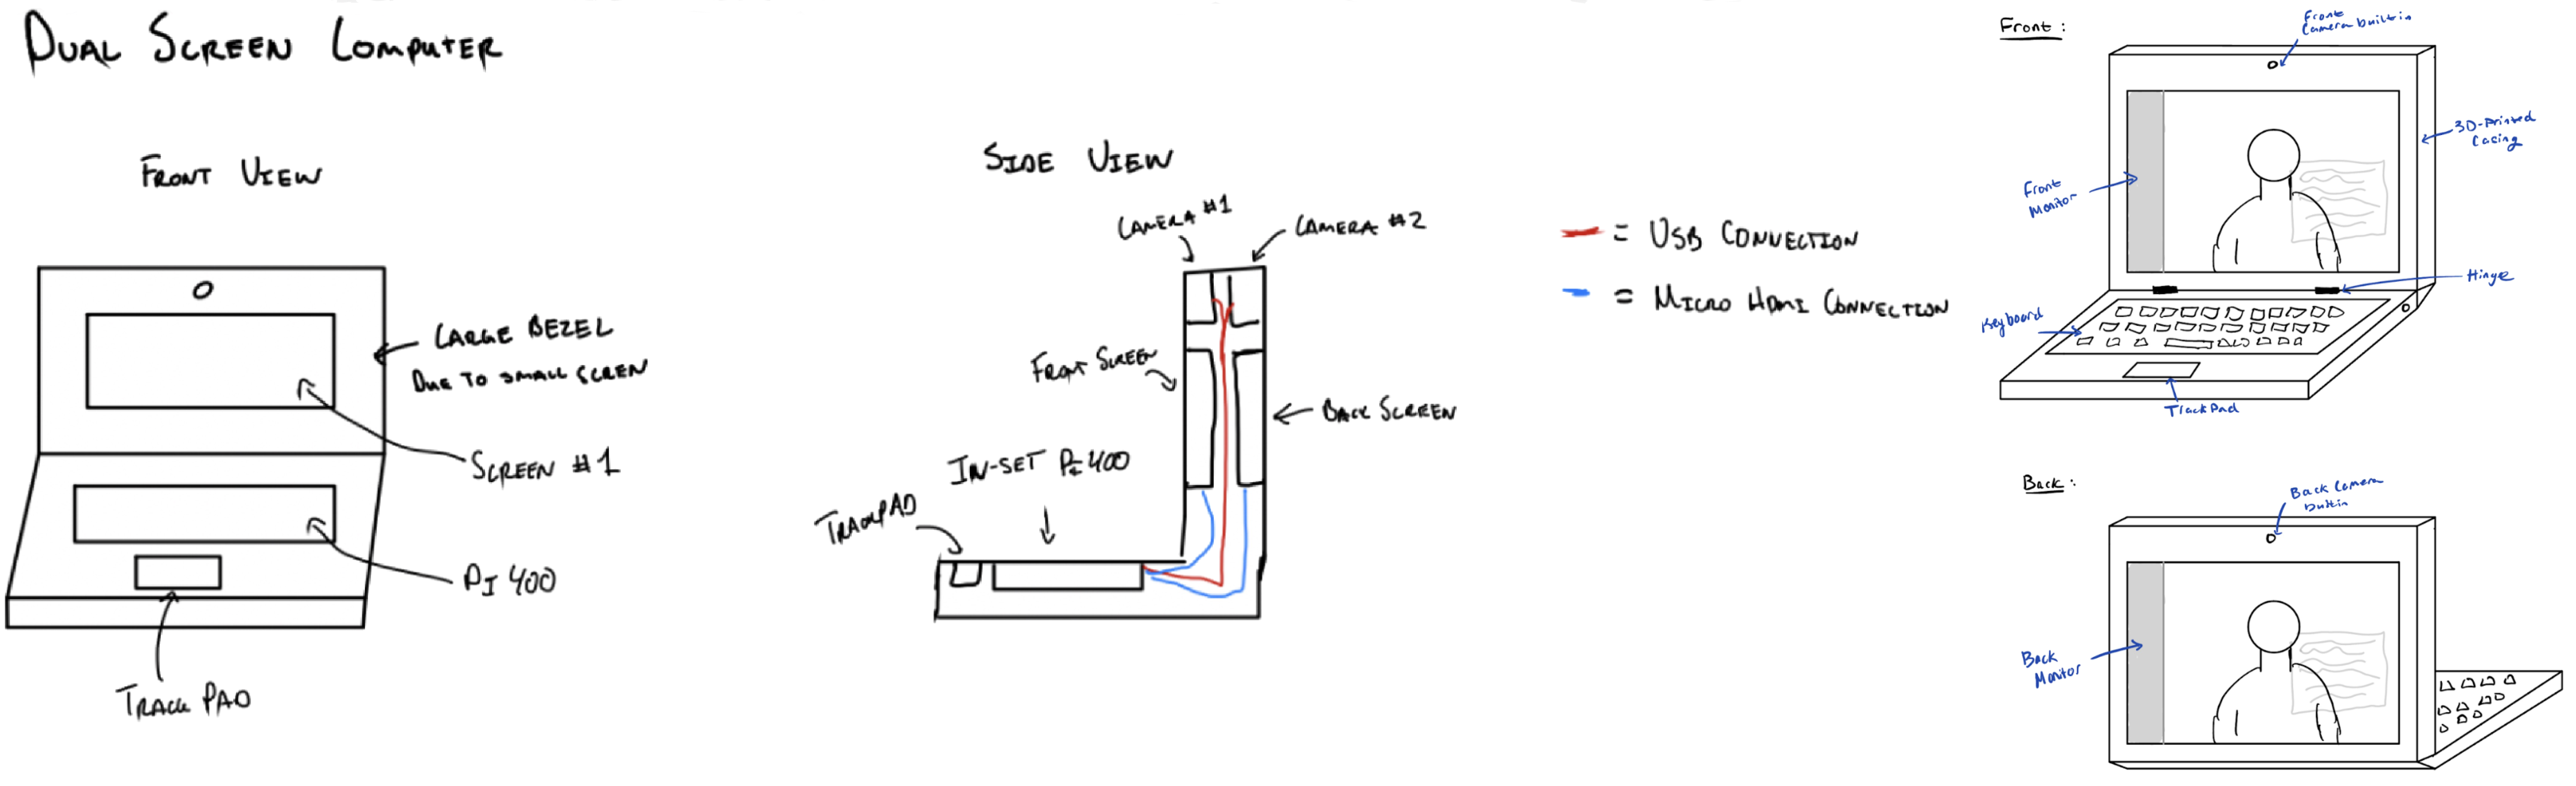 DUAL SCREEN COMPUTER
FRONT VIEW
LARGE BEZEL
DUE TO SMALL SCREEN
SCREEN #1
PI 400
TRACK PAD
SIDE VIEW
CAMERA #1
CAMERA #2
FRONT SCREEN
BACK SCREEN
IN-SET PI 400
TRACKPAD
= USB CONNECTION
= MICRO HDMI CONNECTION
Front :
Front
Camera builtin
3D-Printed
Casing
Front
Monitor
Hinge
Keyboard
TrackPad
Back :
Back Camera
builtin
Back
Monitor